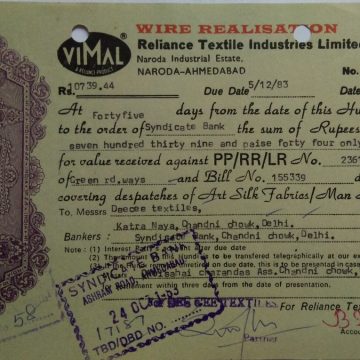 WIRE REALISATION
VIMAL
A RELIANCE PRODUCT
Reliance Textile Industries Limited
Naroda Industrial Estate,
NARODA-AHMEDABAD
No.
Rs. 10739.44
Due Date 5/12/83
At Fortyfive days from the date of this Hu
to the order of Syndicate Bank the sum of Rupees
seven hundred thirty nine and paise forty four only
for value received against PP/RR/LR No. 236
of Green rd.ways and Bill No. 155339
covering despatches of Art Silk Fabrics/Man
To: Messrs Deecee textiles,
Katra Naya, Chandni chouk, Delhi.
Bankers : Syndicate Bank, Chandni chouk, Delhi.
Note: (1) Interest after due date
(2) The amount is to be transferred telegraphically at our ex
due date, this is to be presented in case
charandas Ass. Chandni chouk,
payment within three days from the date of maturity.
SYNDICATE BANK
ASHRAM ROAD
24 OCT 1983
17187
TBD/DBD NO.
58
For DEE CEE TEXTILES
Partner
For Reliance Te
Accoun